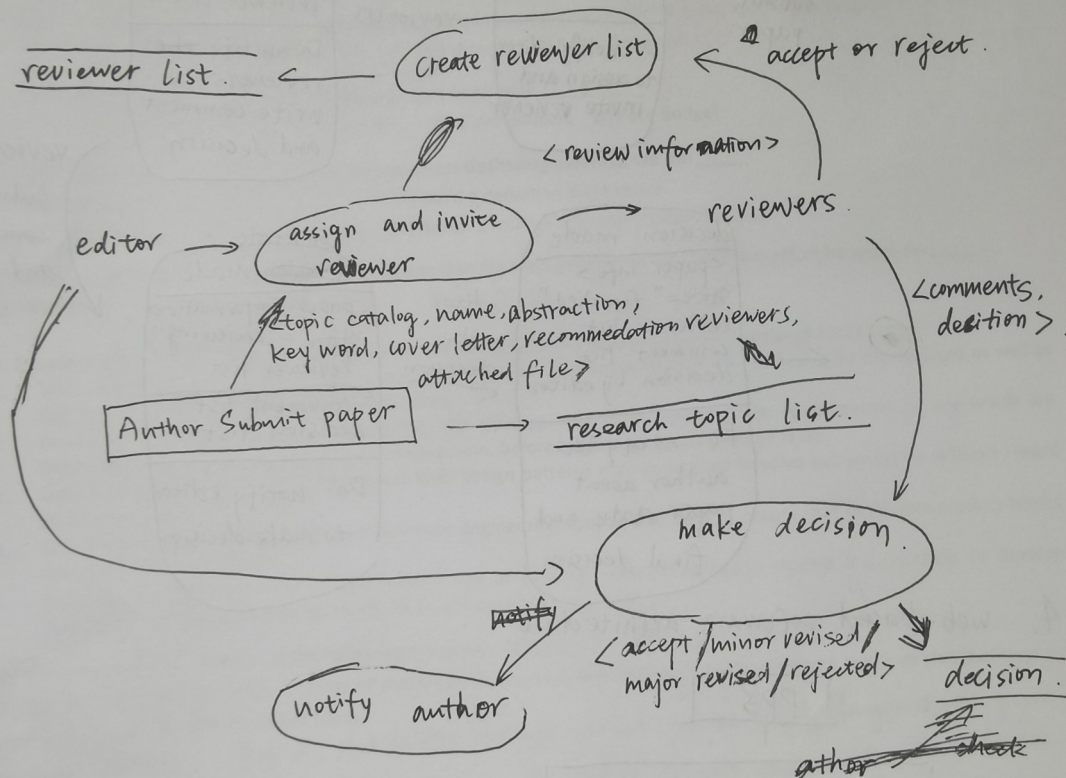 create reviewer list
accept or reject.
reviewer list.
<review information>
reviewers.
assign and invite
reviewer
editor
<comments,
decition>
<topic catalog, name, abstraction,
key word, cover letter, recommedation reviewers,
attached file>
Author Submit paper
research topic list.
make decision.
notify
<accept/minor revised/
major revised/rejected>
decision.
notify author
athor
check